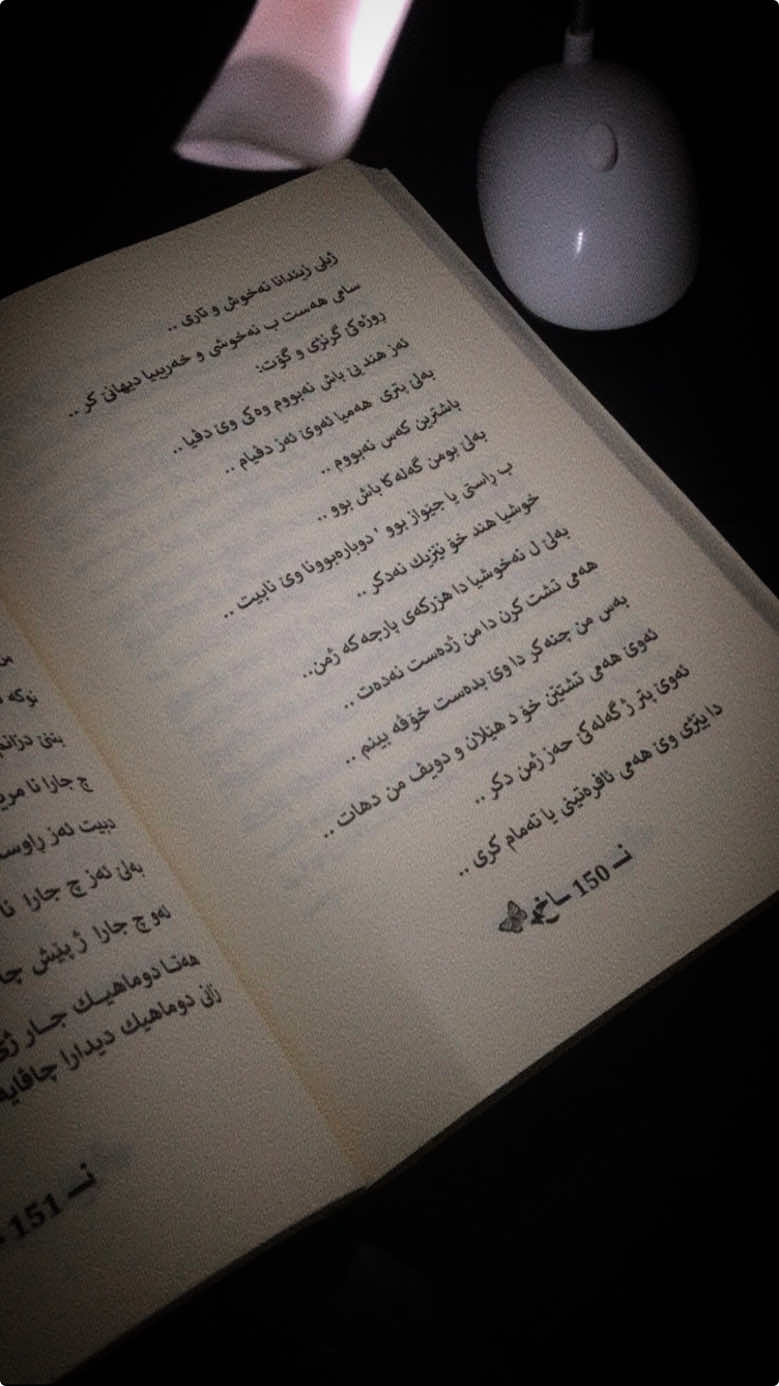 ژیلی زیندانا نەخوش و تاری ..
سامی هەست ب نەخوشی و خەریبیا دیهانێ کر ..
روژەکێ گرنژی و گۆت:
ئەز هند یێ باش نەبووم وەکی وێ دڤیا ..
بەلێ بتری هەمیا ئەوێ ئەز دڤیام ..
باشترین کەس نەبووم ..
بەلێ بومن گەلەکا باش بوو ..
ب ڕاستی یا جێواز بوو ' دوبارەبوونا وێ نابیت ..
خوشیا هند خۆ نێزیك نەدکر ..
بەلێ ل نەخوشیا دا هزرکەی پارچەکە ژمن..
هەمی تشت کرن دا من ژدەست نەدەت ..
بەس من چنەکر دا وێ بدەست خۆڤە بینم ..
ئەوێ هەمی تشتێن خۆ د هێلان و دویف من دهات ..
ئەوێ بتر ژ گەلەکێ حەز ژمن دکر ..
دا بێژی وێ هەمی ئافرەتینی یا تەمام کری ..
150
نوکە
بنێ دزانم
چ جارا نا
دبیت ئەز ڕاوس
بەلێ ئەز چ جارا نا
ئەو چ جارا ژ پێش چا
هەتا دوماهیـك جـار ژی
زانی دوماهیك دیدارا چاڤایە
151